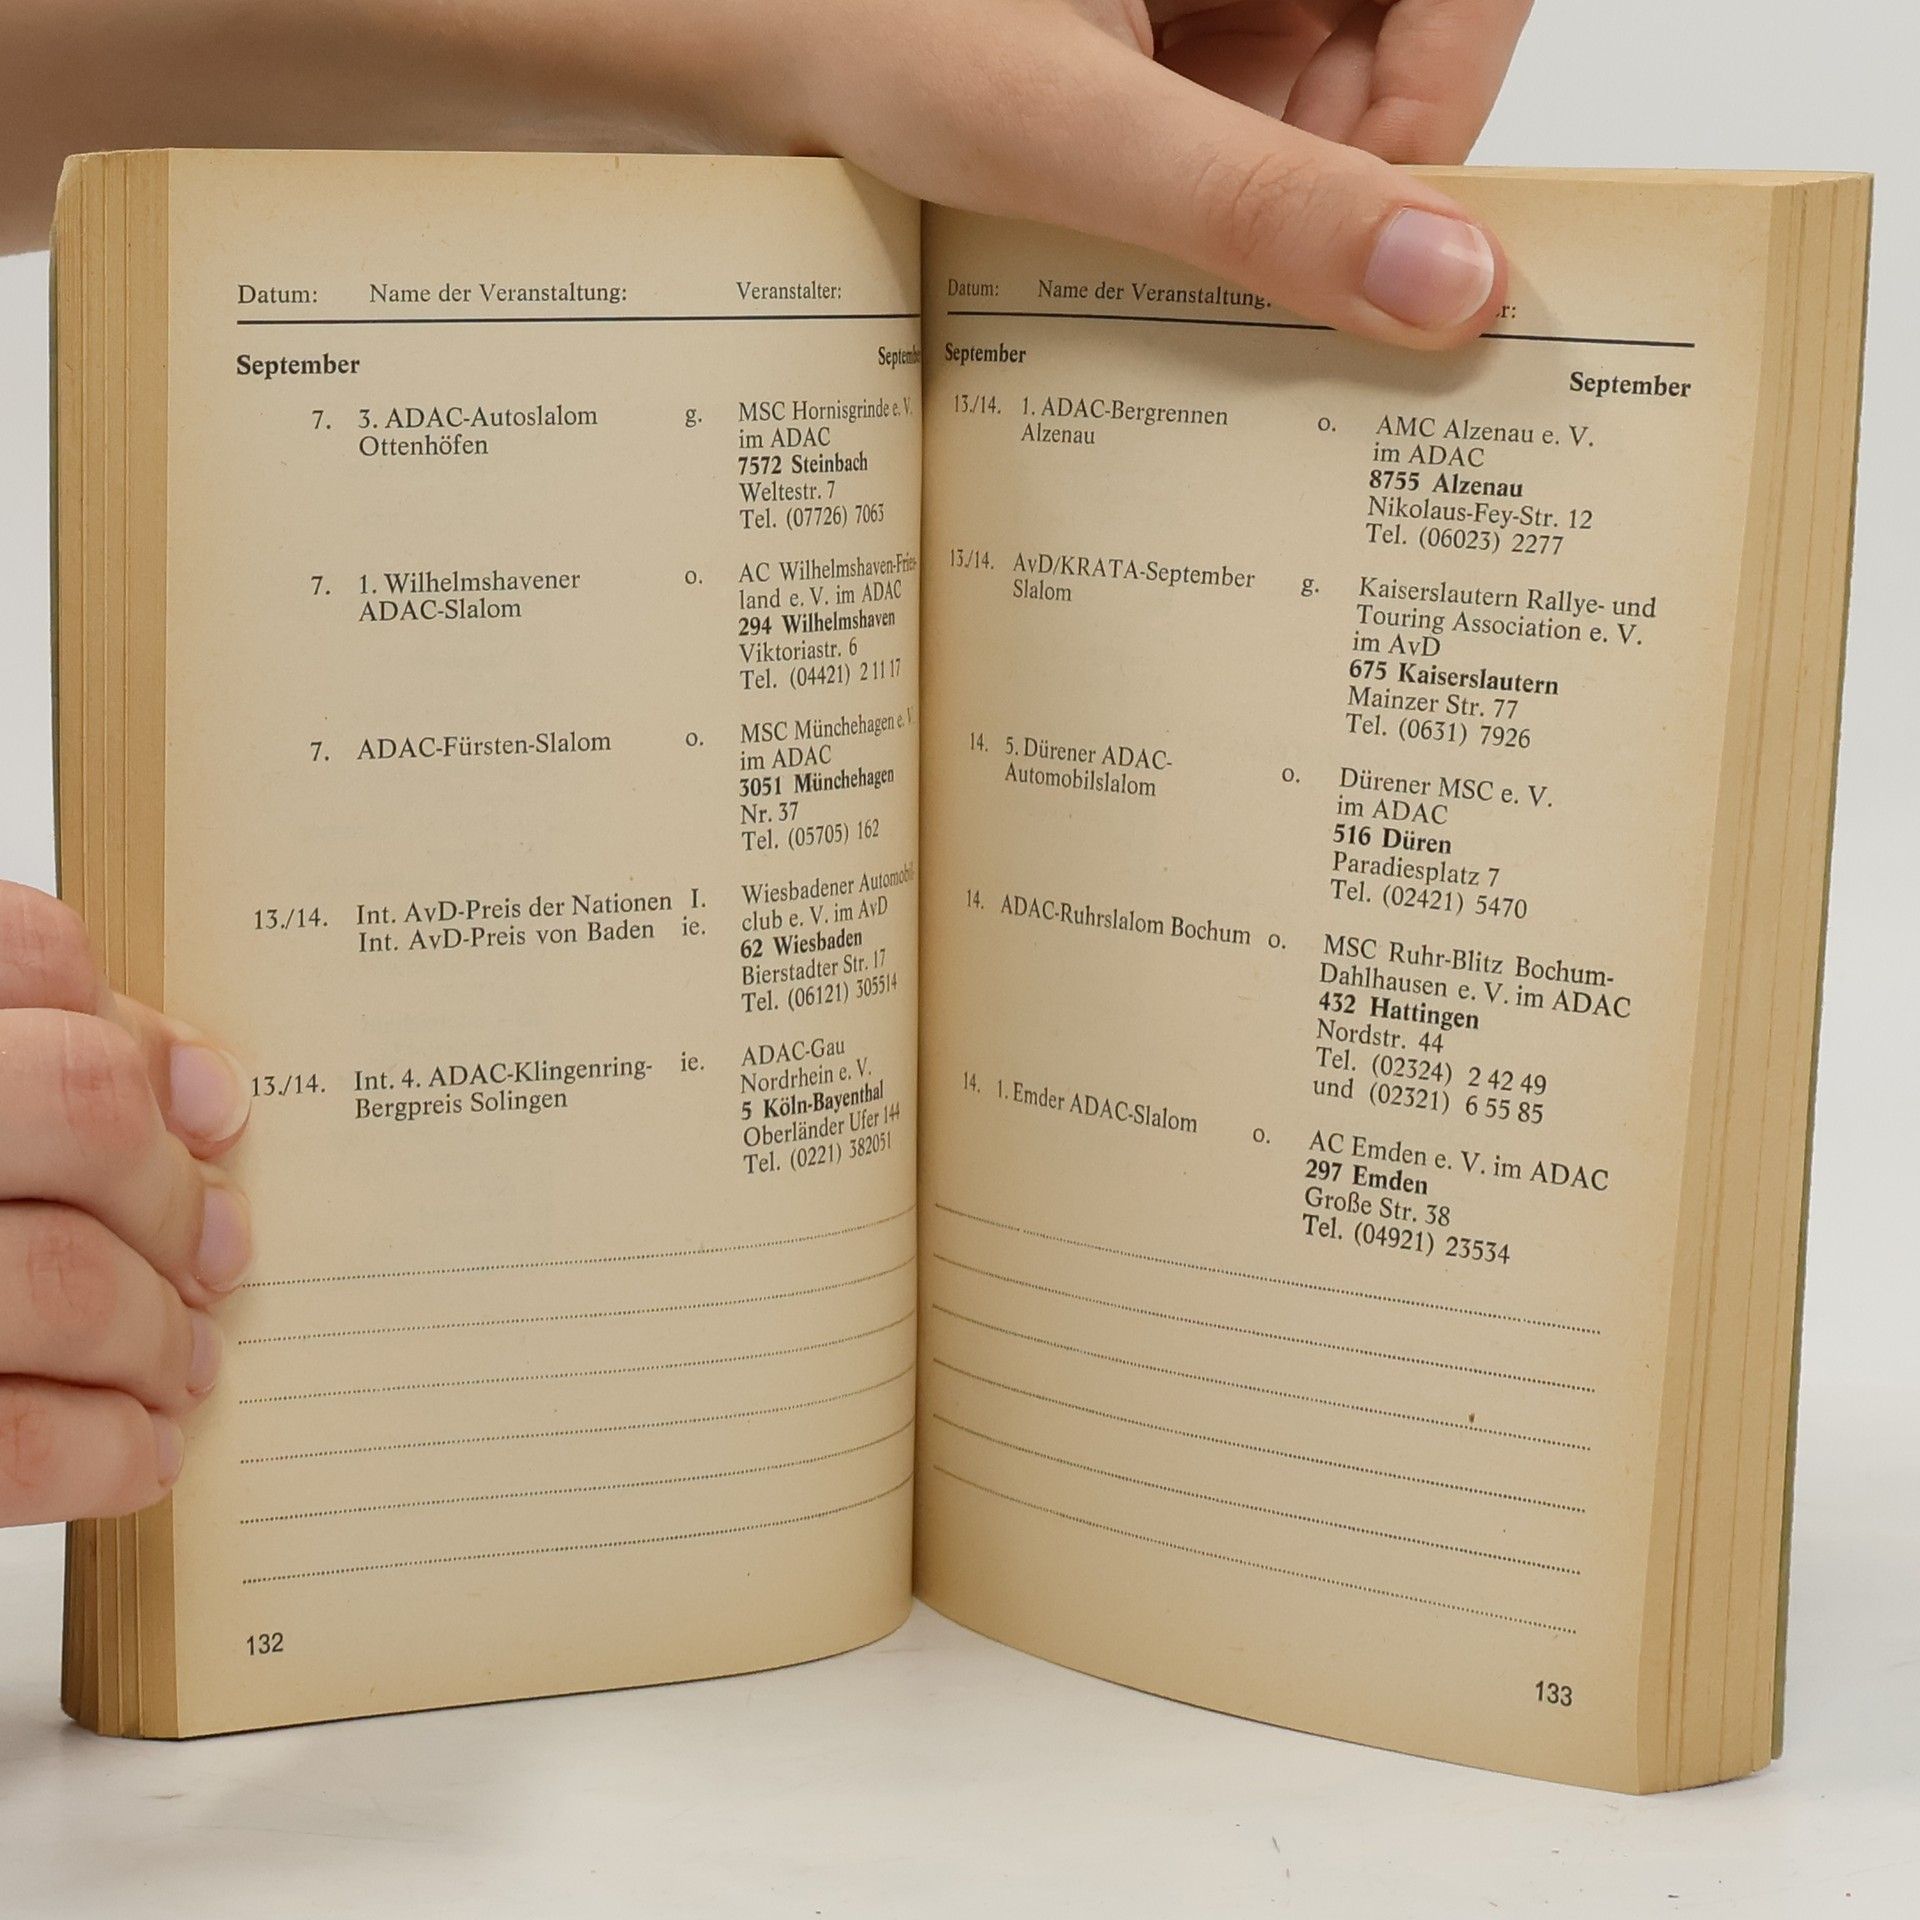 Datum: Name der Veranstaltung: Veranstalter:
September September
7. 3. ADAC-Autoslalom g. MSC Hornisgrinde e. V.
Ottenhöfen im ADAC
7572 Steinbach
Weltestr. 7
Tel. (07726) 7063
7. 1. Wilhelmshavener o. AC Wilhelmshaven-Fries-
ADAC-Slalom land e. V. im ADAC
294 Wilhelmshaven
Viktoriastr. 6
Tel. (04421) 2 11 17
7. ADAC-Fürsten-Slalom o. MSC Münchehagen e. V.
im ADAC
3051 Münchehagen
Nr. 37
Tel. (05705) 162
13./14. Int. AvD-Preis der Nationen I. Wiesbadener Automobil-
Int. AvD-Preis von Baden ie. club e. V. im AvD
62 Wiesbaden
Bierstadter Str. 17
Tel. (06121) 305514
13./14. Int. 4. ADAC-Klingenring- ie. ADAC-Gau
Bergpreis Solingen Nordrhein e. V.
5 Köln-Bayenthal
Oberländer Ufer 144
Tel. (0221) 382051
132
Datum: Name der Veranstaltung: r:
September September
13./14. 1. ADAC-Bergrennen o. AMC Alzenau e. V.
Alzenau im ADAC
8755 Alzenau
Nikolaus-Fey-Str. 12
Tel. (06023) 2277
13./14. AvD/KRATA-September g. Kaiserslautern Rallye- und
Slalom Touring Association e. V.
im AvD
675 Kaiserslautern
Mainzer Str. 77
Tel. (0631) 7926
14. 5. Dürener ADAC- o. Dürener MSC e. V.
Automobilslalom im ADAC
516 Düren
Paradiesplatz 7
Tel. (02421) 5470
14. ADAC-Ruhrslalom Bochum o. MSC Ruhr-Blitz Bochum-
Dahlhausen e. V. im ADAC
432 Hattingen
Nordstr. 44
Tel. (02324) 2 42 49
und (02321) 6 55 85
14. 1. Emder ADAC-Slalom o. AC Emden e. V. im ADAC
297 Emden
Große Str. 38
Tel. (04921) 23534
133